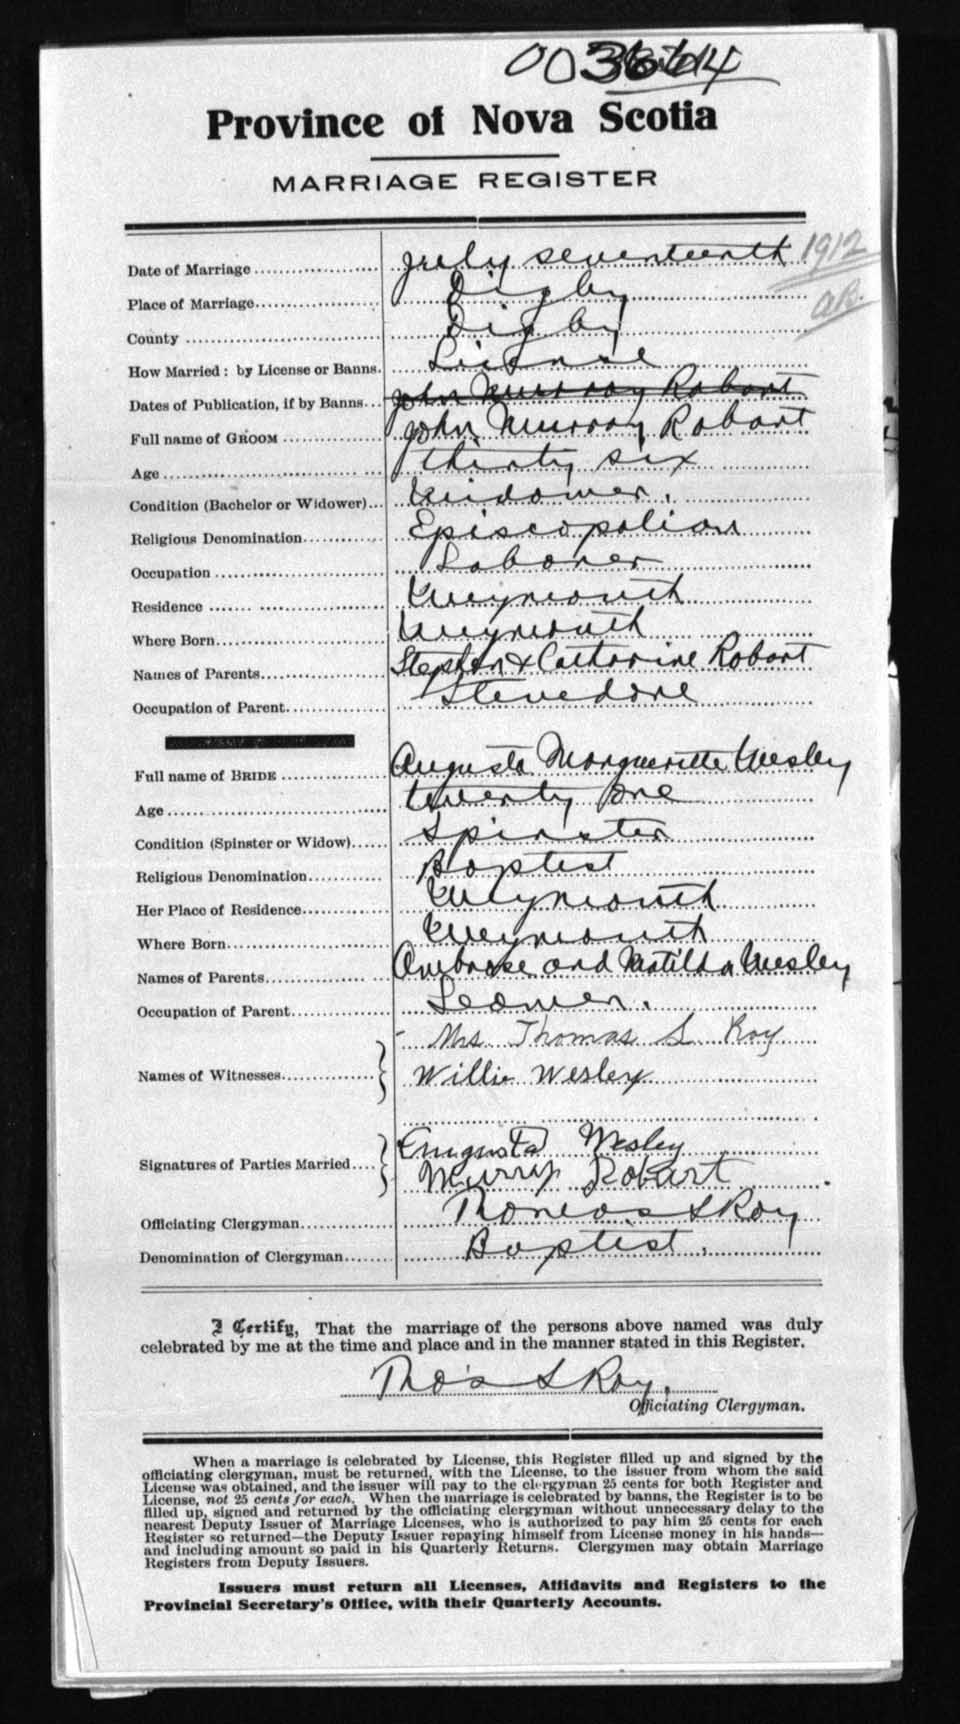 Province of Nova Scotia
MARRIAGE REGISTER
1912
Date of Marriage July seventeenth
Place of Marriage Digby
County Digby
How Married: by License or Banns. License
Dates of Publication, if by Banns John Murray Robart
Full name of GROOM John Murray Robart
Age thirty six
Condition (Bachelor or Widower) Widower.
Religious Denomination Episcopalian
Occupation Laborer
Residence Weymouth
Where Born Weymouth
Names of Parents Stephen & Catharine Robart
Occupation of Parent Stevedore
Full name of BRIDE Augusta Margueritte Wesley
Age twenty one
Condition (Spinster or Widow) Spinster
Religious Denomination Baptist
Her Place of Residence Weymouth
Where Born Weymouth
Names of Parents Ambrose and Matilda Wesley
Occupation of Parent
Mrs. Thomas S Roy
Names of Witnesses Willie Wesley
Augusta Wesley
Signatures of Parties Married Murry Robart
Officiating Clergyman Thomas S Roy
Denomination of Clergyman Baptist.
I Certify, That the marriage of the persons above named was duly
celebrated by me at the time and place and in the manner stated in this Register.
Tho's S Roy,
Officiating Clergyman.
When a marriage is celebrated by License, this Register filled up and signed by the
officiating clergyman, must be returned, with the License, to the issuer from whom the said
License was obtained, and the issuer will pay to the clergyman 25 cents for both Register and
License, not 25 cents for each. When the marriage is celebrated by banns, the Register is to be
filled up, signed and returned by the officiating clergyman without unnecessary delay to the
nearest Deputy Issuer of Marriage Licenses, who is authorized to pay him 25 cents for each
Register so returned—the Deputy Issuer repaying himself from License money in his hands—
and including amount so paid in his Quarterly Returns. Clergymen may obtain Marriage
Registers from Deputy Issuers.
Issuers must return all Licenses, Affidavits and Registers to the
Provincial Secretary's Office, with their Quarterly Accounts.